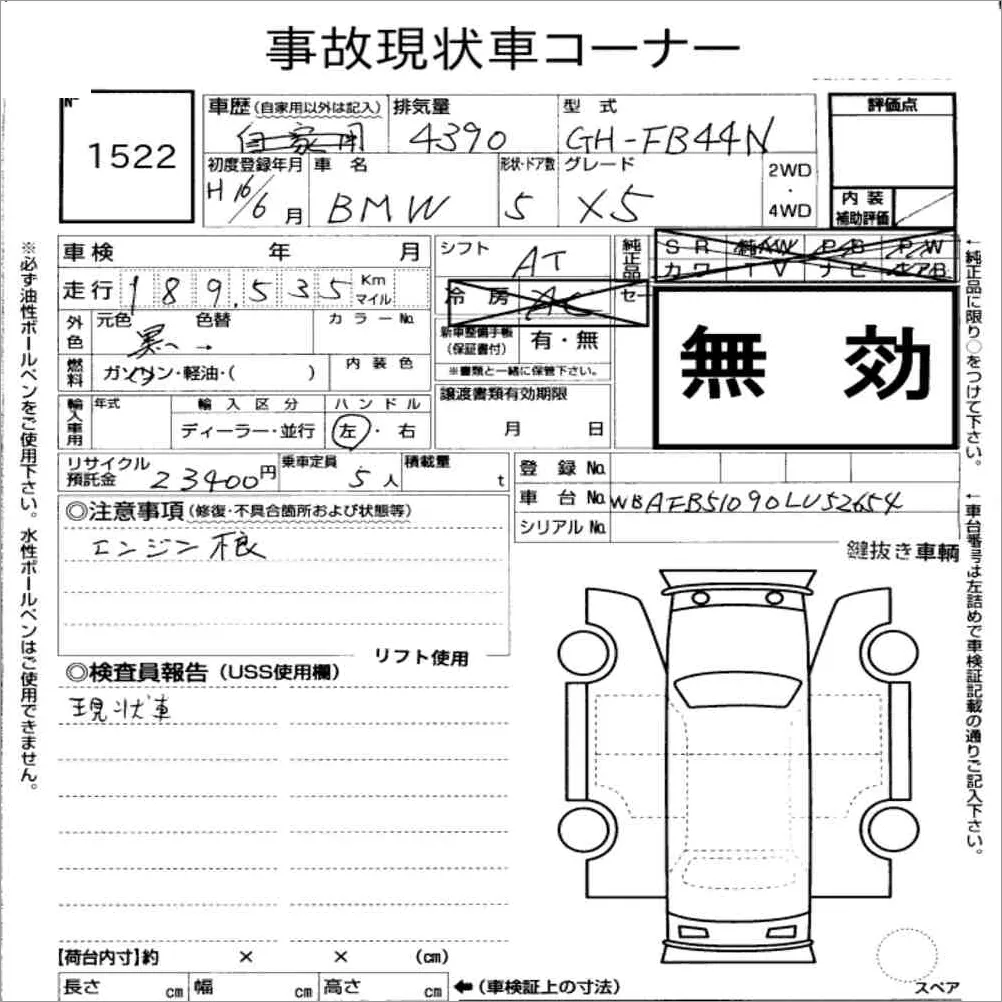 事故現状車コーナー
No
1522
車歴(自家用以外は記入)
自家用
排気量
4390
型 式
GH-FB44N
評価点
初度登録年月
H 16/6 月
車 名
BMW
形状・ドア数
5
グレード
X5
2WD
・
4WD
内 装
補助評価
車検 年 月
シフト
AT
純正品
SR 純AW PS PW
カワ TV ナビ エアB
走行 189,535 Km
マイル
冷 房 AC
セー
無 効
外色
元色 色替
黒 →
カラーNo.
新車整備手帳
(保証書付)
有・無
※書類と一緒に保管下さい。
燃料
ガソリン・軽油・( )
内 装 色
譲渡書類有効期限
月 日
輸入車用
年式
輸 入 区 分
ディーラー・並行
ハ ン ド ル
左・右
リサイクル
預託金
23400円
乗車定員
5人
積載量
t
登 録 No.
車 台 No.
シリアル No.
◎注意事項(修復・不具合箇所および状態等)
エンジン不良
鍵抜き車輌
リフト使用
◎検査員報告(USS使用欄)
現状車
【荷台内寸】約 × × (cm)
長さ cm 幅 cm 高さ cm
←(車検証上の寸法)
スペア
※必ず油性ボールペンをご使用下さい。水性ボールペンはご使用できません。
←純正品に限り○をつけて下さい。
←車台番号は左詰めで車検証記載の通りご記入下さい。